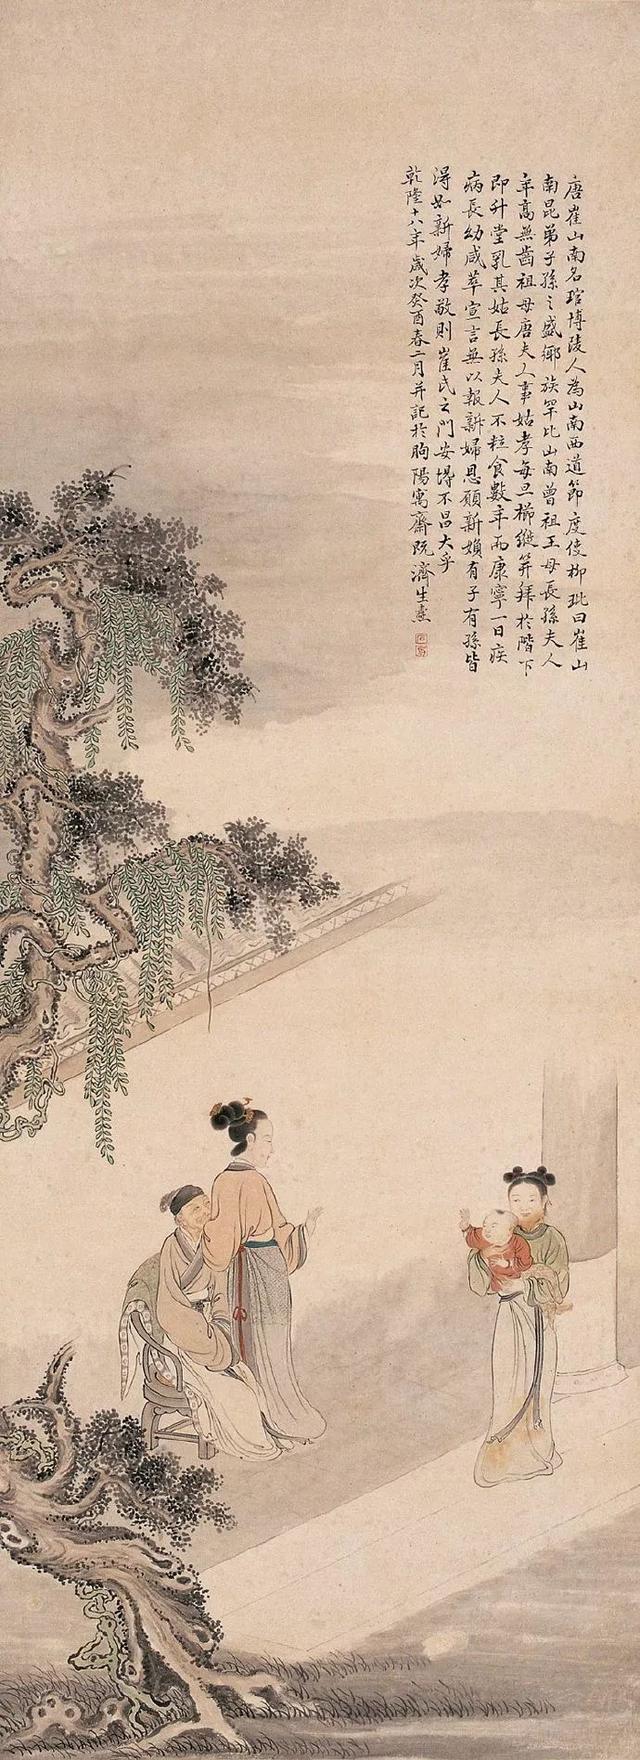 唐崔山南名琯博陵人為山南西道節度使柳玭曰崔山
南昆弟子孫之盛鄉族罕比山南曾祖王母長孫夫人
年高無齒祖母唐夫人事姑孝每旦櫛縰笄拜於階下
即升堂乳其姑長孫夫人不粒食數年而康寧一日疾
病長幼咸萃宣言無以報新婦恩願新婦有子有孫皆
得如新婦孝敬則崔氏之門安得不昌大乎
乾隆十八年歲次癸酉春二月并記於朐陽寓齋阮濟生